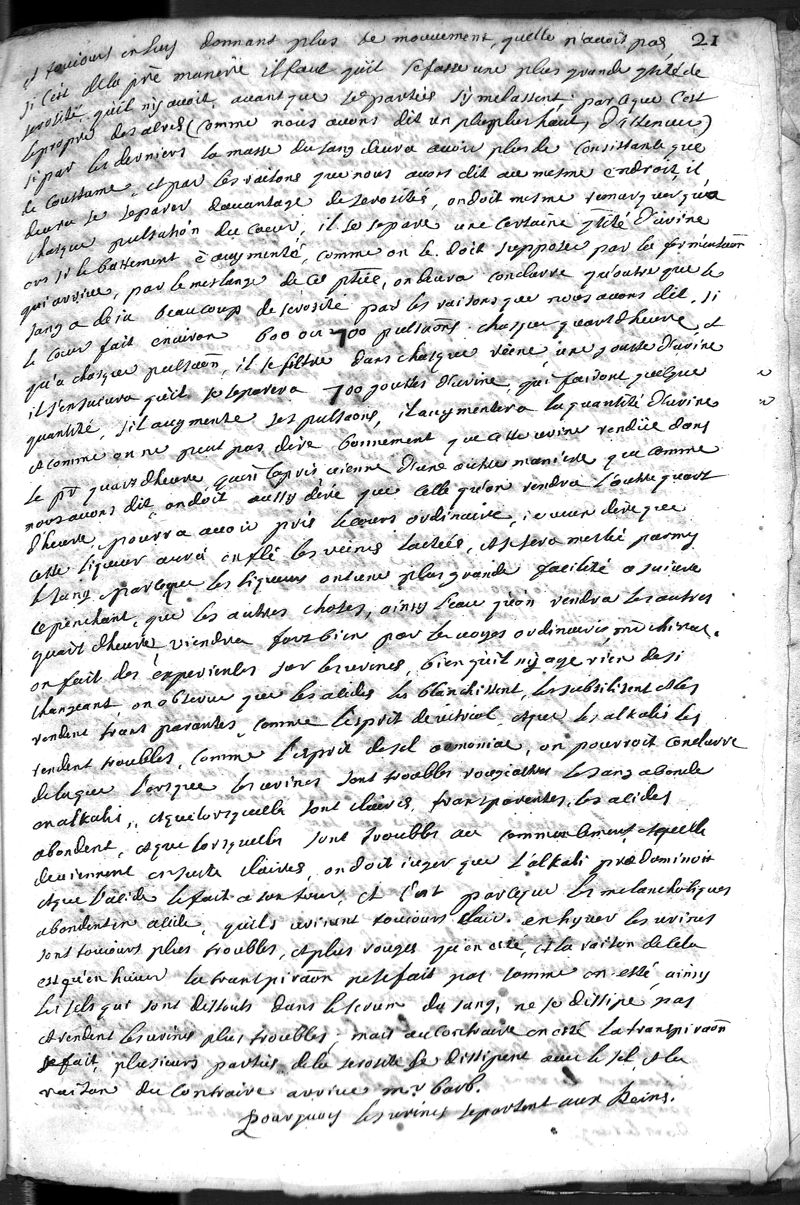 21
et toujours en luy donnant plus de mouuement, quelle n'auoit pas,
si c'est de la pre maniere il faut qu'il se fasse une plus grande qtité de
serosité qu'il n'y auoit, auant que ses parties s'y melassent, parceque c'est
le propre des (comme nous auons dit un peu plus haut,
si par les derniers la masse du sang deura auoir plus de consistance que
de couttume, et par les raisons que nous auons dit au mesme endroit, il
deura se separer dauantage de serosités, on doit mesme remarquer qu'a
chasque pulsation du coeur, il se separe une certaine qtité d'urine
ors si le battement è augmenté, comme on le doit supposer par les
qui arriue, par le meslange de ces pties, on deura conclurre qu'outre que le
sang a deia beaucoup de serosité par les raisons que nous auons dit, si
le coeur fait enuiron 600 ou 700 pulsaons chasque quart d'heure, et
qu'a chasque pulsaon, il se filtre dans chasque une goutte d'urine
il s'ensuiura qu'il se separera 700 gouttes d'urine, qui fairont quelque
quantité, s'il augmente ses pulsaons, il augmentera la quantité d'urine
et comme on ne peut pas dire bonnement que cette urine rendüe dans
le pr quart d'heure, vienne d'une autre maniere que comme
nous auons dit, on doit aussy dire que celle qu'on rendra l'autre quart
d'heure, pourra auoir pris le cours ordinaire, ie veux dire que
cette liqueur aura enflé les veines lactées, et sera meslé parmy
le sang, parceque les liqueurs ont une plus grande facilité a suiure
le penchant, que les autres choses, ainsy l'eau qu'on rendra les autres
quart d'heure, viendra fort bien par les voyes ordinaires
on fait des experiences sur les urines, bien qu'il n'y aye rien de si
changeant, on obserue que les acides les blanchissent, les subtilisent et les
rendent transparantes, comme l'esprit de vitriol, et que les alkalis les
rendent troubles, comme l'esprit de sel armoniac, on pourroit conclurre
de la que lorsque les urines sont troubles rougeattres le sang abonde
en alkalis, et que lorsquelles sont claires, transparentes, les acides
abondent, et que lorsquelles sont troubles au commancement, et quelle
deuiennent ensuite claires, on doit iuger que l'alkali prædominoit
et que l'acide le fait a son tour, et c'est parceque les melancholiques
abondent en acide, qu'ils urinent toujours clair. en hyuer les urines
sont toujours plus troubles, et plus rouges qu'en esté, et la raison de cela
est qu'en hiuer la transpiraon ne se fait pas comme en esté, ainsy
les sels qui sont dissouts dans le serum du sang, ne se dissipe pas
et rendent les urines plus troubles, mais au contraire en esté la transpiraon
se fait, plusieurs parties de la serosité se dissipent auec le sel, et la
raison du contraire arriue mr barb.
Pourquoy les urines se portent aux Reins.